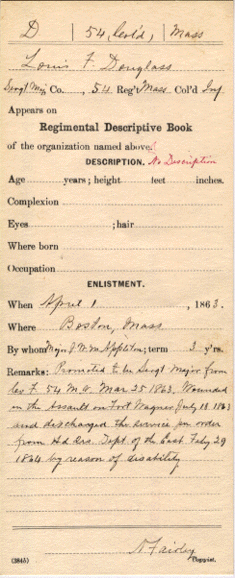 D | 54 Col'd, | Mass
Louis F. Douglass
Sergt Maj Co., 54 Reg't Mass. Col'd Inf
Appears on
Regimental Descriptive Book
of the organization named above.
DESCRIPTION. No Description
Age years; height feet inches.
Complexion
Eyes ; hair
Where born
Occupation
ENLISTMENT.
When April 1 , 1863.
Where Boston, Mass
By whom Major J. W. M. Appleton; term 3 y'rs.
Remarks: Promoted to be Sergt Major from
Co F. 54 M.V. Mar 25 1863. Wounded
in the Assault on Fort Wagner July 18 1863
and discharged the service per order
from Hd Qrs. Dept. of the East Feby 29
1864 by reason of disability
(384b) Copyist.